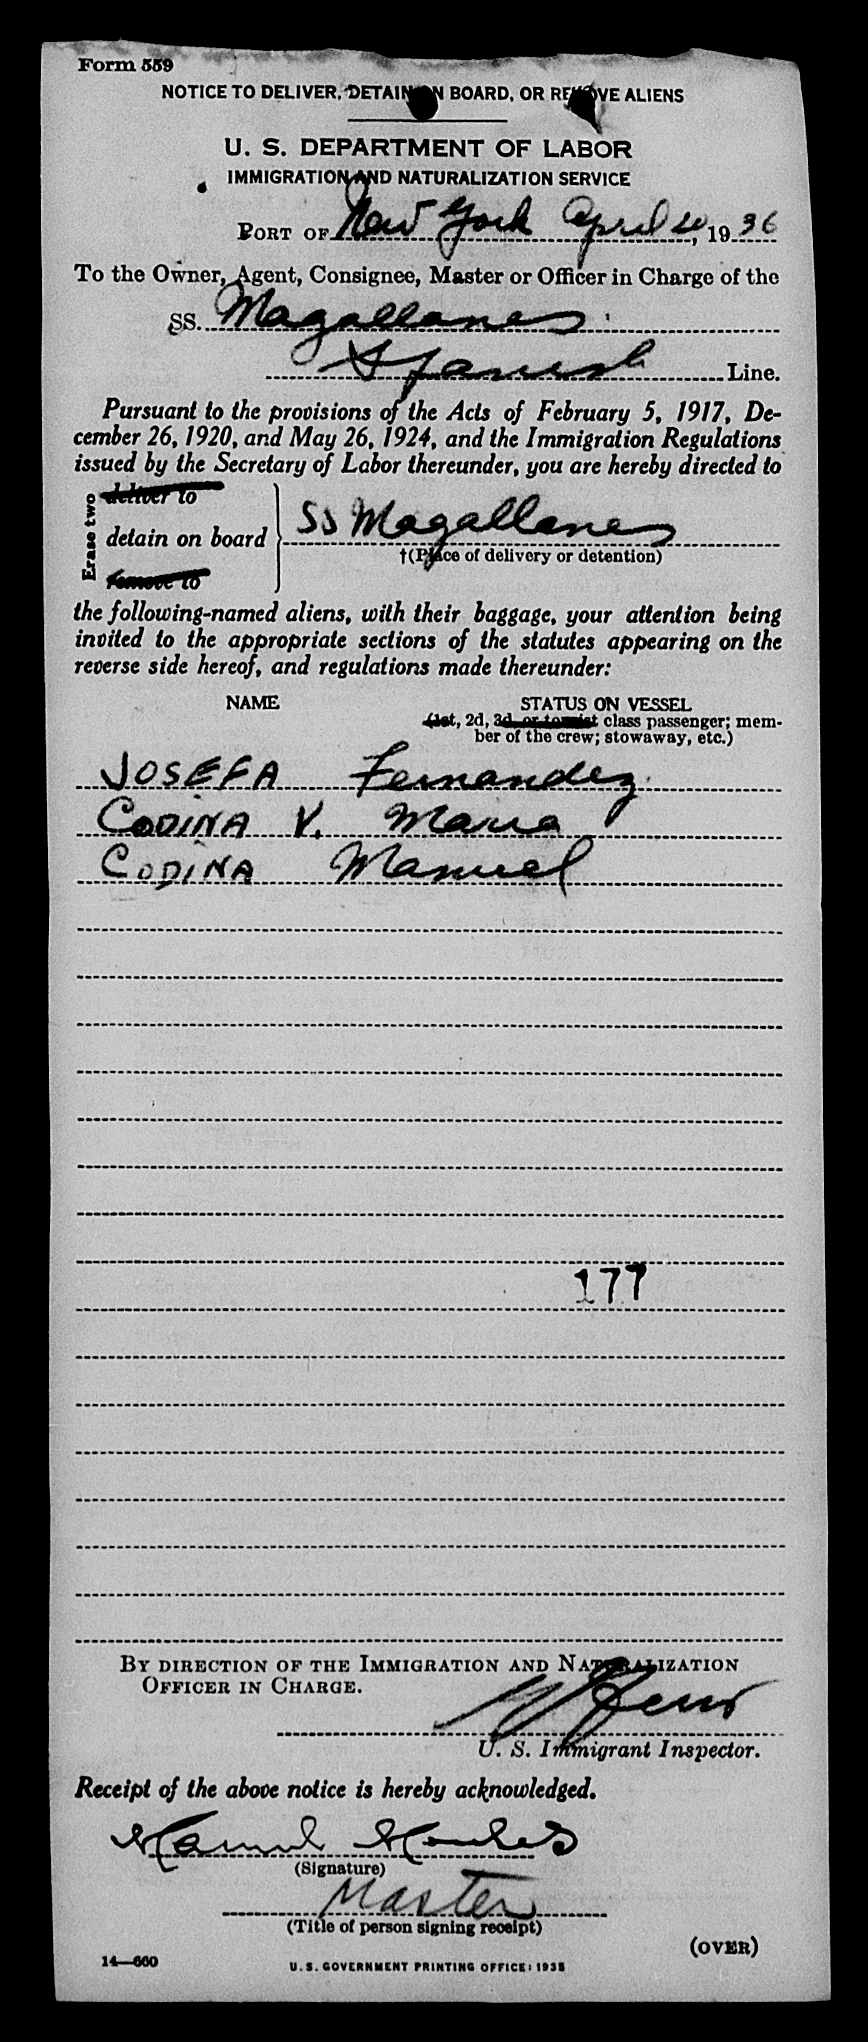 Form 559
NOTICE TO DELIVER, DETAIN ON BOARD, OR REMOVE ALIENS
U. S. DEPARTMENT OF LABOR
IMMIGRATION AND NATURALIZATION SERVICE
PORT OF New York April, 1936
To the Owner, Agent, Consignee, Master or Officer in Charge of the
SS. Magallanes
Spanish Line.
Pursuant to the provisions of the Acts of February 5, 1917, De-
cember 26, 1920, and May 26, 1924, and the Immigration Regulations
issued by the Secretary of Labor thereunder, you are hereby directed to
Erase two
deliver to
detain on board SS Magallanes
†(Place of delivery or detention)
remove to
the following-named aliens, with their baggage, your attention being
invited to the appropriate sections of the statutes appearing on the
reverse side hereof, and regulations made thereunder:
NAME STATUS ON VESSEL
(1st, 2d, 3d, or tourist class passenger; mem-
ber of the crew; stowaway, etc.)
JOSEFA Fernandez
CODINA V. Maria
CODINA Manuel
177
BY DIRECTION OF THE IMMIGRATION AND NATURALIZATION
OFFICER IN CHARGE.
U. S. Immigrant Inspector.
Receipt of the above notice is hereby acknowledged.
(Signature)
Master
(Title of person signing receipt)
(OVER)
14—660
U. S. GOVERNMENT PRINTING OFFICE: 1935